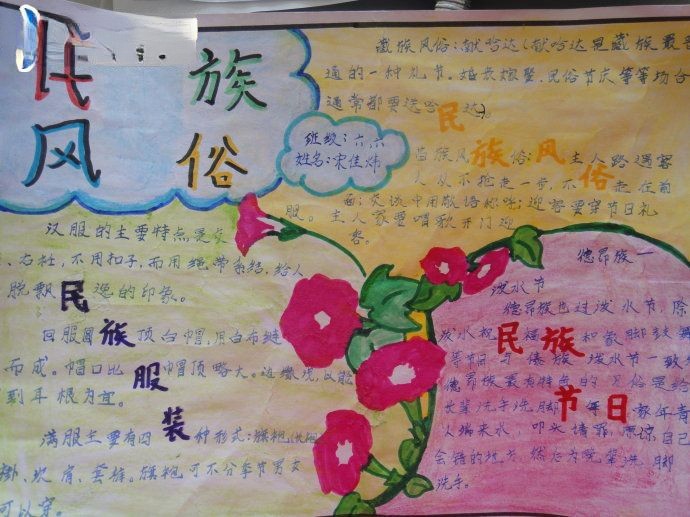 民族
风俗
藏族风俗：献哈达（献哈达是藏族最普
通的一种礼节。婚丧嫁娶、民俗节庆等等场合
通常都要送哈达）。
班级：六.六
姓名：宋佳炜
民族风俗
风俗：主人路遇客
人从不抢走一步，不走在前
面；交谈中用敬语称呼；迎客要穿节日礼
服。主人家要唱歌开门迎
客。
汉服的主要特点是交
、右衽，不用扣子，而用绳带系结，给人
脱飘逸的印象。
民族服装
回服 顶白帽，用白布缝
而成。帽口比帽顶略大。
到耳根为宜。
满服主要有四种形式：旗袍、
掛、坎肩、套裤。旗袍可不分季节男女
可以穿。
德昂族—
泼水节
德昂族也过泼水节，除
泼水 和象脚鼓舞
等节目与傣族泼水节一致
民族节日
德昂族最有特色的习俗是给
长辈洗手洗脚。 年青
人端来水，叩头请罪，原谅自己
会错的地方，然后为晚辈洗脚
洗手。